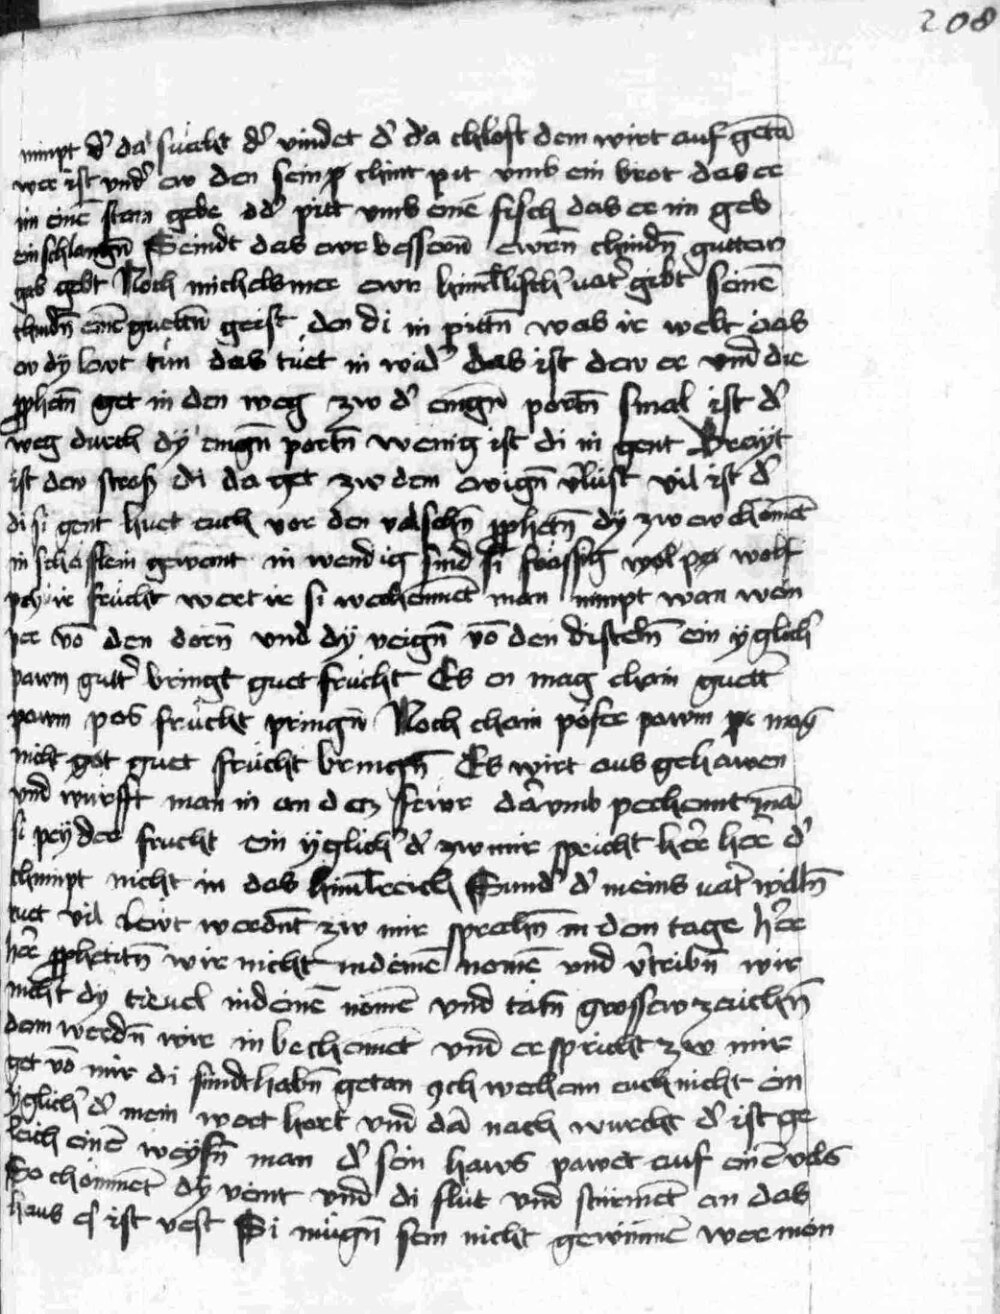 208
nimpt d' da suecht d' vindet d' da chloft dem wirt auf getā
wer ist vnd' ew den sein chint pit vmb ein brot das er
im einē stain gebe od' pitt vmb einē fisch das er im geb
ein schlangn̄ Seindt das ewr bessern̄ ewrn̄ chindn̄ guttew
gab gebt Noch michels mer ewr himllisch' vat' gebt seinē
chindn̄ einē guettn̄ geist den di in pittn̄ was ir welt das
ew dy lewt tun das tuet in wid' das ist dew ee vnd die
pphetn̄ get in den weg zw d' engn̄ portn̄ smal ist d'
weg durch dy engn̄ portn̄ wenig ist di in gent Brayt
ist dew strass di da get zw dem ewign̄ v'lust vil ist d'
di si gent huet euch vor den valschn̄ pphetn̄ dy zw ew chōmēt
in scheflein gewant inwendig sind si frässig wolf
pey ir frücht wert ir si erchennēt man nimpt wan wein
per vō den dorn̄ vnd dy veign̄ vō den disteln̄ ein yglich'
pawm gutt' bringt guet frücht Es en mag chain guett'
pawm pos frücht pringn̄ Noch chain poser pawm mag
nicht guet frücht bringn̄ Es wirt aus gehawen
vnd wurfft man in an daz fewr darvmb pechennt mā
si pey der frucht ein yglich' d' zw mir spricht her' her' d'
chimpt nicht in das himlreich Sund' d' meins vat' willn̄
tuet vil lewt werdnt zw mir sprechn̄ in dem tage h're
h're pphetitn̄ wir nicht in deinē nomē vnd v'tribn̄ wir
nicht dy tieuel in deinē nomē vnd tatn̄ grossew zaichn̄
dem werdn̄ wir in bechennēt vnd er spricht zw mir
get vō mir di sündt habn̄ getan Ich erchenn euch nicht ein
yglich' d' mein wort hort vnd dā nach wurcht d' ist ge
leich einē weysn̄ man d' sein haws pawet auf einē vels
So chömmēt dy vint vnd di flüt vnd stürmēt an das
haus es ist vest Si mügn̄ sein nicht gewinnē wer mein